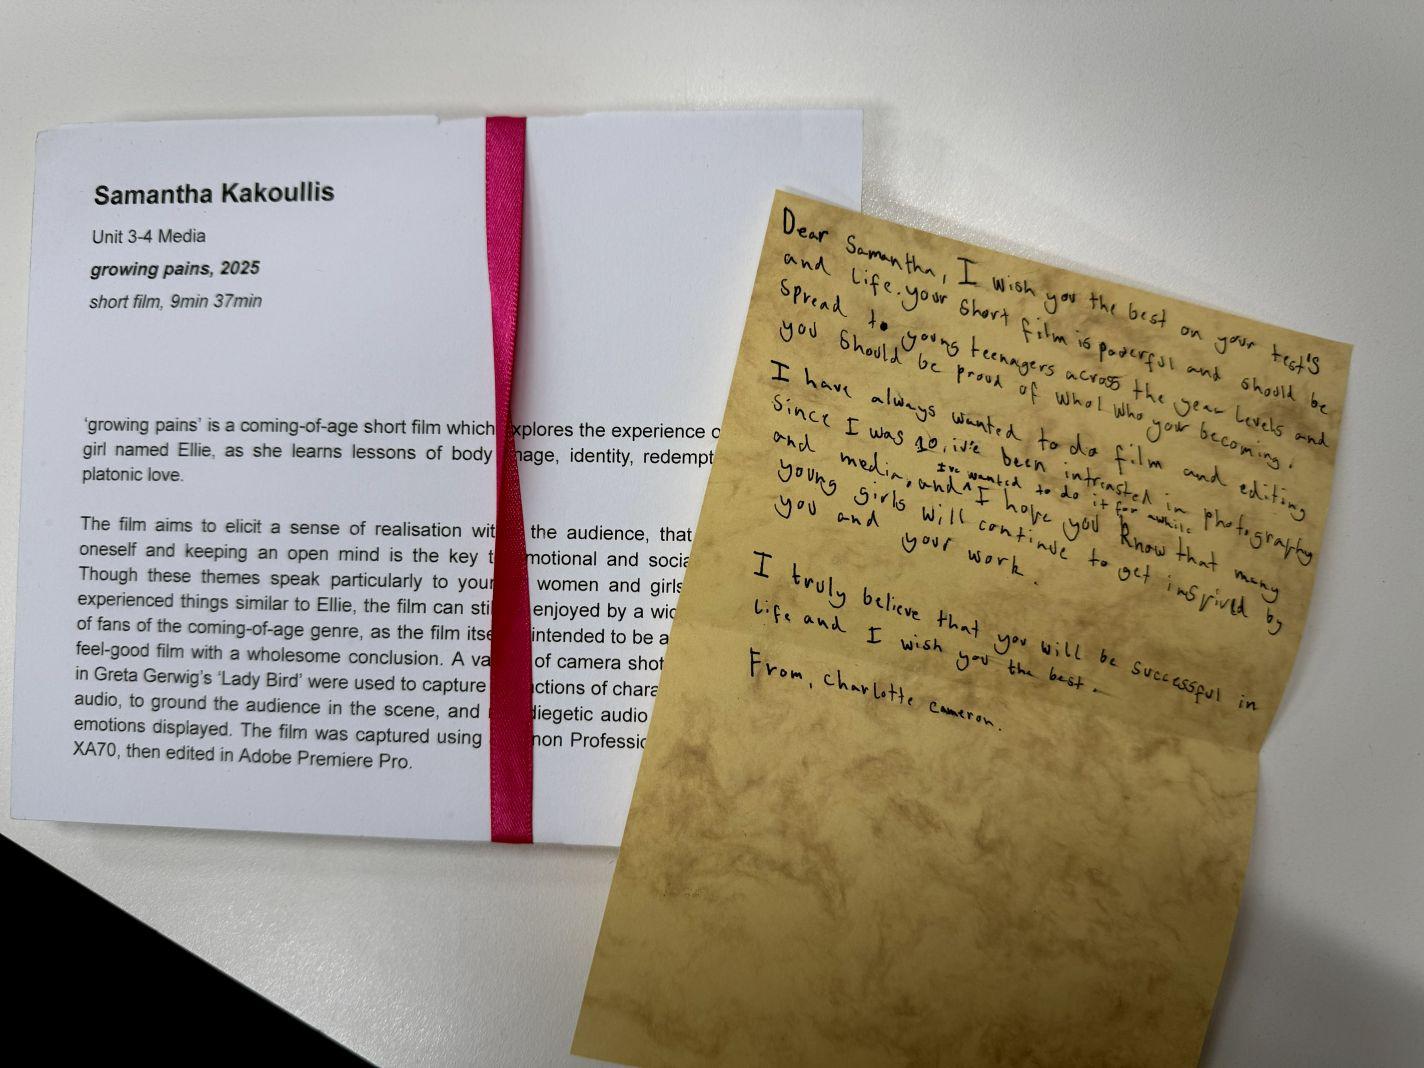 Samantha Kakoullis
Unit 3-4 Media
growing pains, 2025
short film, 9min 37min
'growing pains' is a coming-of-age short film which xplores the experience o
girl named Ellie, as she learns lessons of body mage, identity, redempt
platonic love.
The film aims to elicit a sense of realisation wit the audience, that
oneself and keeping an open mind is the key t motional and socia
Though these themes speak particularly to your women and girls
experienced things similar to Ellie, the film can sti enjoyed by a wid
of fans of the coming-of-age genre, as the film itse intended to be a
feel-good film with a wholesome conclusion. A va of camera shot
in Greta Gerwig's 'Lady Bird' were used to capture ctions of chara
audio, to ground the audience in the scene, and diegetic audio
emotions displayed. The film was captured using non Professio
XA70, then edited in Adobe Premiere Pro.
Dear Samantha, I wish you the best on your test's
and life. your short film is powerful and should be
spread to young teenagers across the year levels and
you should be proud of who your becoming.
I have always wanted to do film and editing
since I was 10, iv'e been intrested in photography
and media, and I've wanted to do it for awhile I hope you know that many
young girls will continue to get inspired by
you and your work.
I truly believe that you will be successful in
life and I wish you the best.
From, Charlotte Cameron.